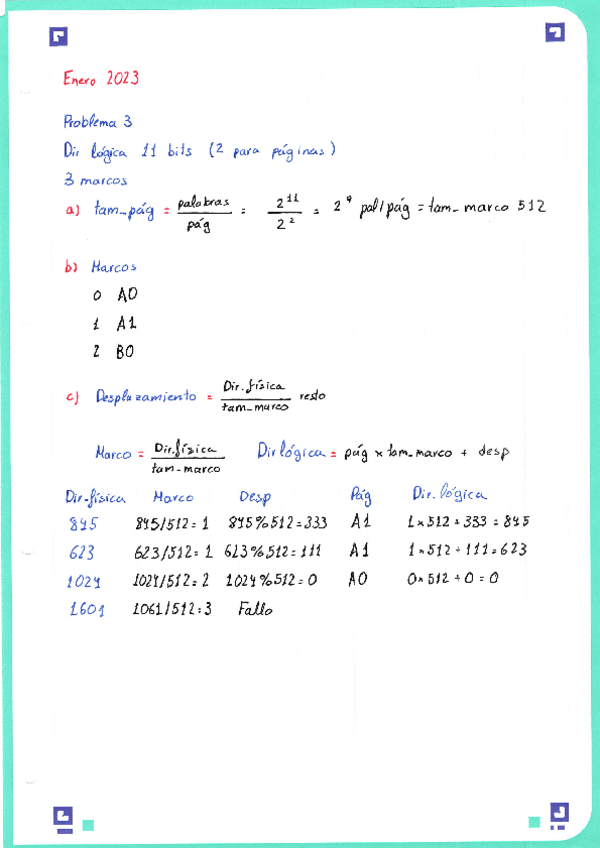 Enero 2023
Problema 3
Dir lógica 11 bits (2 para páginas)
3 marcos
a) tam_pág = palabras / pág = 2^11 / 2^2 = 2^9 pal/pág = tam_marco 512
b) Marcos
0 A0
1 A1
2 B0
c) Desplazamiento = Dir.física / tam_marco resto
Marco = Dir.física / tam_marco Dir lógica = pág × tam_marco + desp
Dir.física Marco Desp Pág Dir. lógica
845 845/512 = 1 845%512=333 A1 1×512 + 333 = 845
623 623/512 = 1 623%512=111 A1 1×512 + 111 = 623
1024 1024/512 = 2 1024%512=0 A0 0×512 + 0 = 0
1601 1061/512 = 3 Fallo